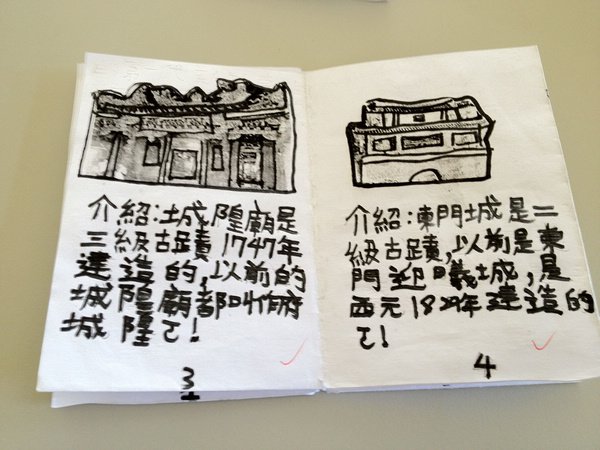 介紹:城隍廟是
三級古蹟 1747年
建造的,以前的
城隍廟都叫作府
城隍ㄛ!
3
介紹:東門城是二
級古蹟,以前是東
門迎曦城,是
西元1829年建造的
ㄛ!
4